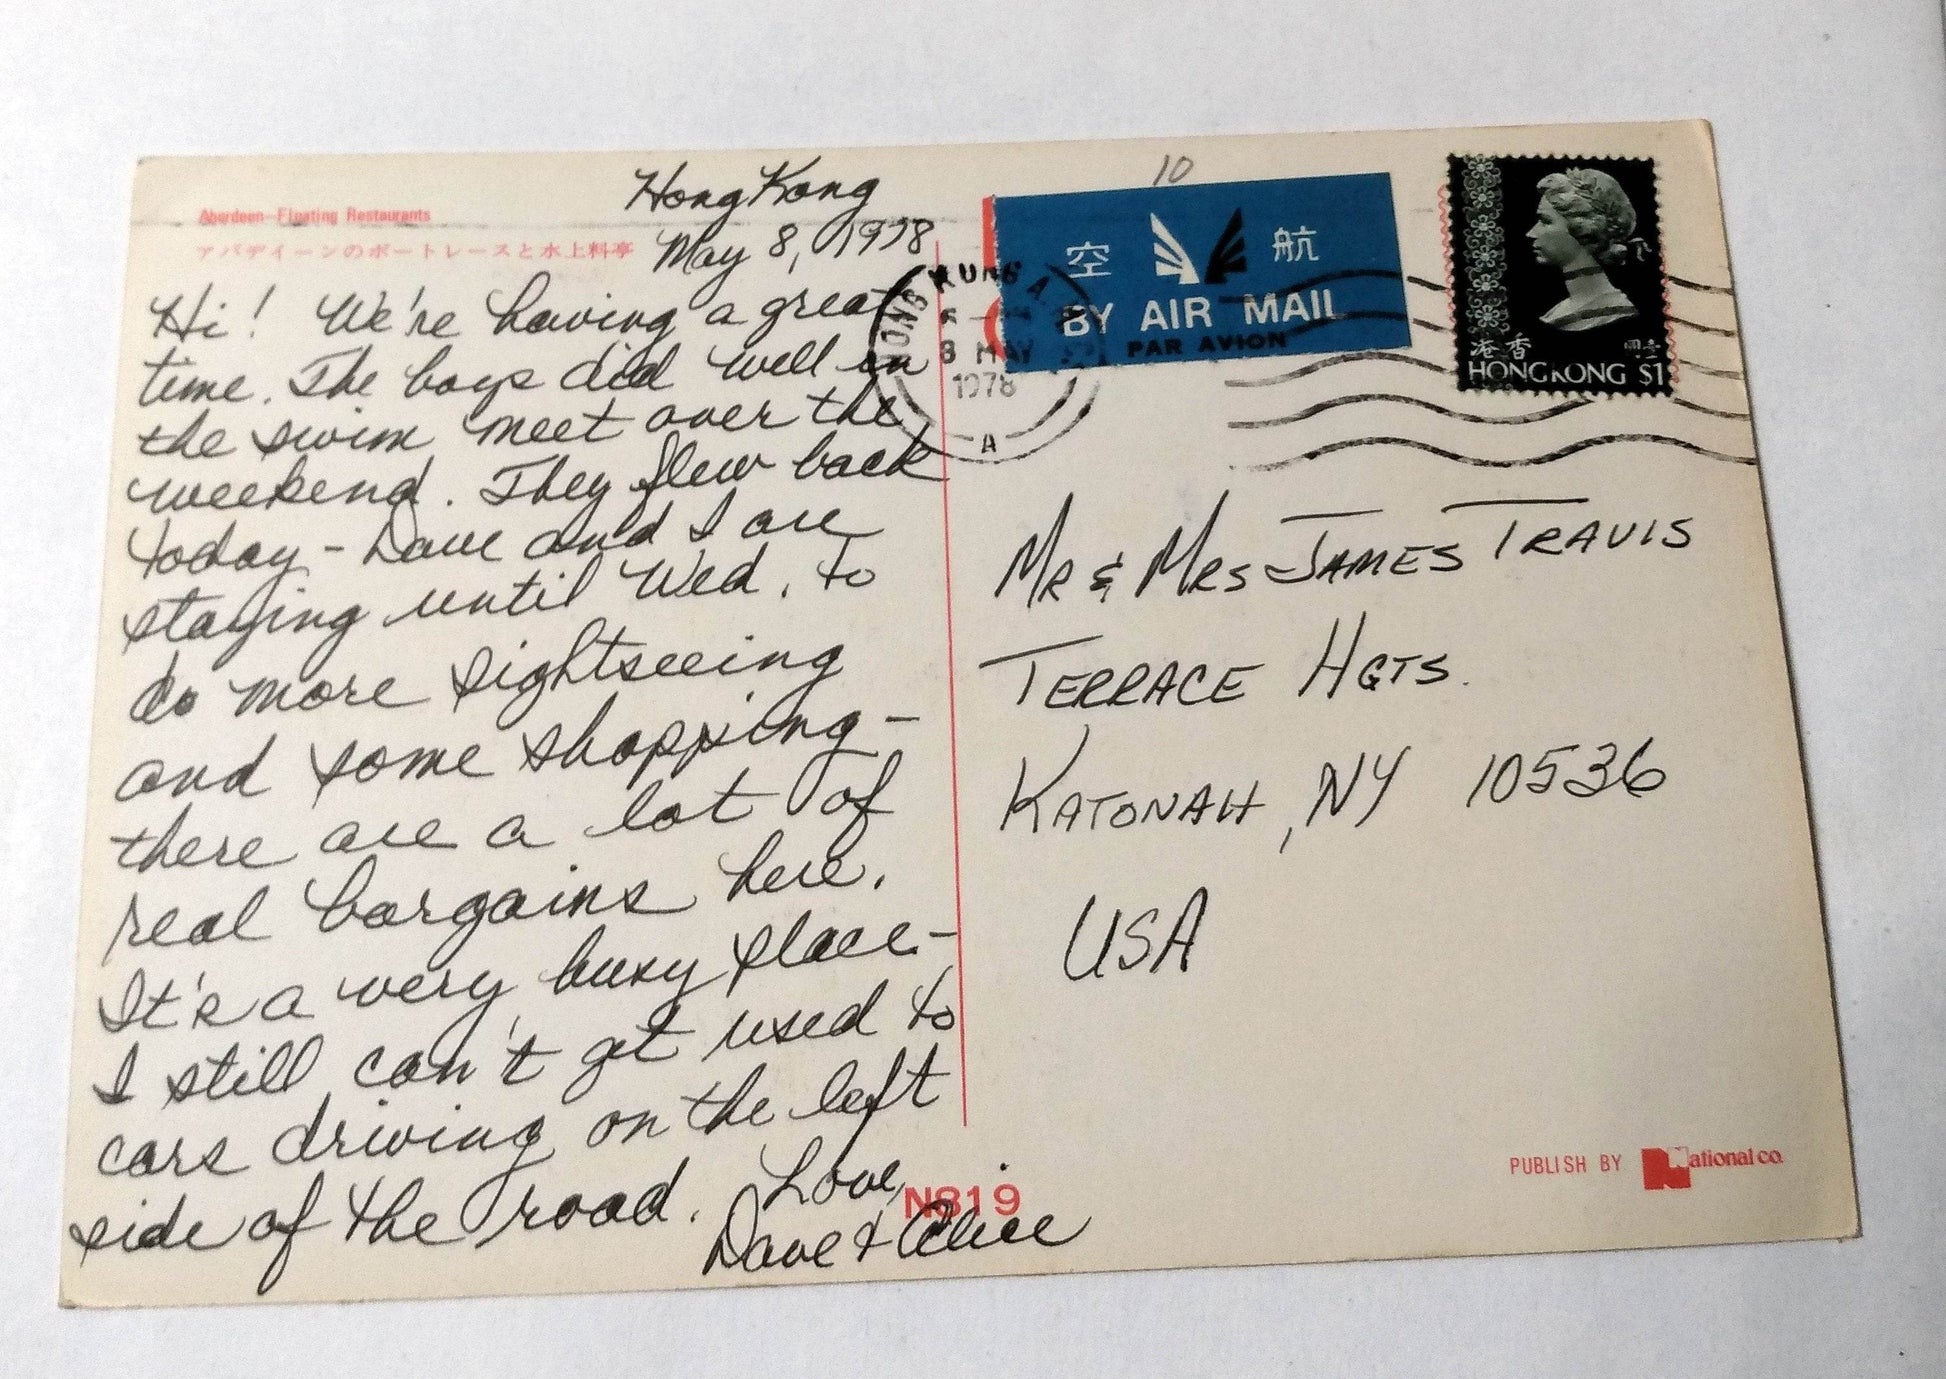 Aberdeen Floating Restaurants
アバディーンのボートレースと水上料亭
Hong Kong
May 8, 1978
Hi! We're having a great
time. The boys did well in
the swim meet over the
weekend. They flew back
today - Dave and I are
staying until Wed. to
do more sightseeing
and some shopping -
there are a lot of
real bargains here.
It's a very busy place -
I still can't get used to
cars driving on the left
side of the road. Love,
Dave & Alice
N819
10
空 航
BY AIR MAIL
PAR AVION
HONG KONG
8 MAY
1978
A
香港
HONG KONG $1
MR & MRS JAMES TRAVIS
TERRACE HGTS.
KATONAH, NY 10536
USA
PUBLISH BY National co.